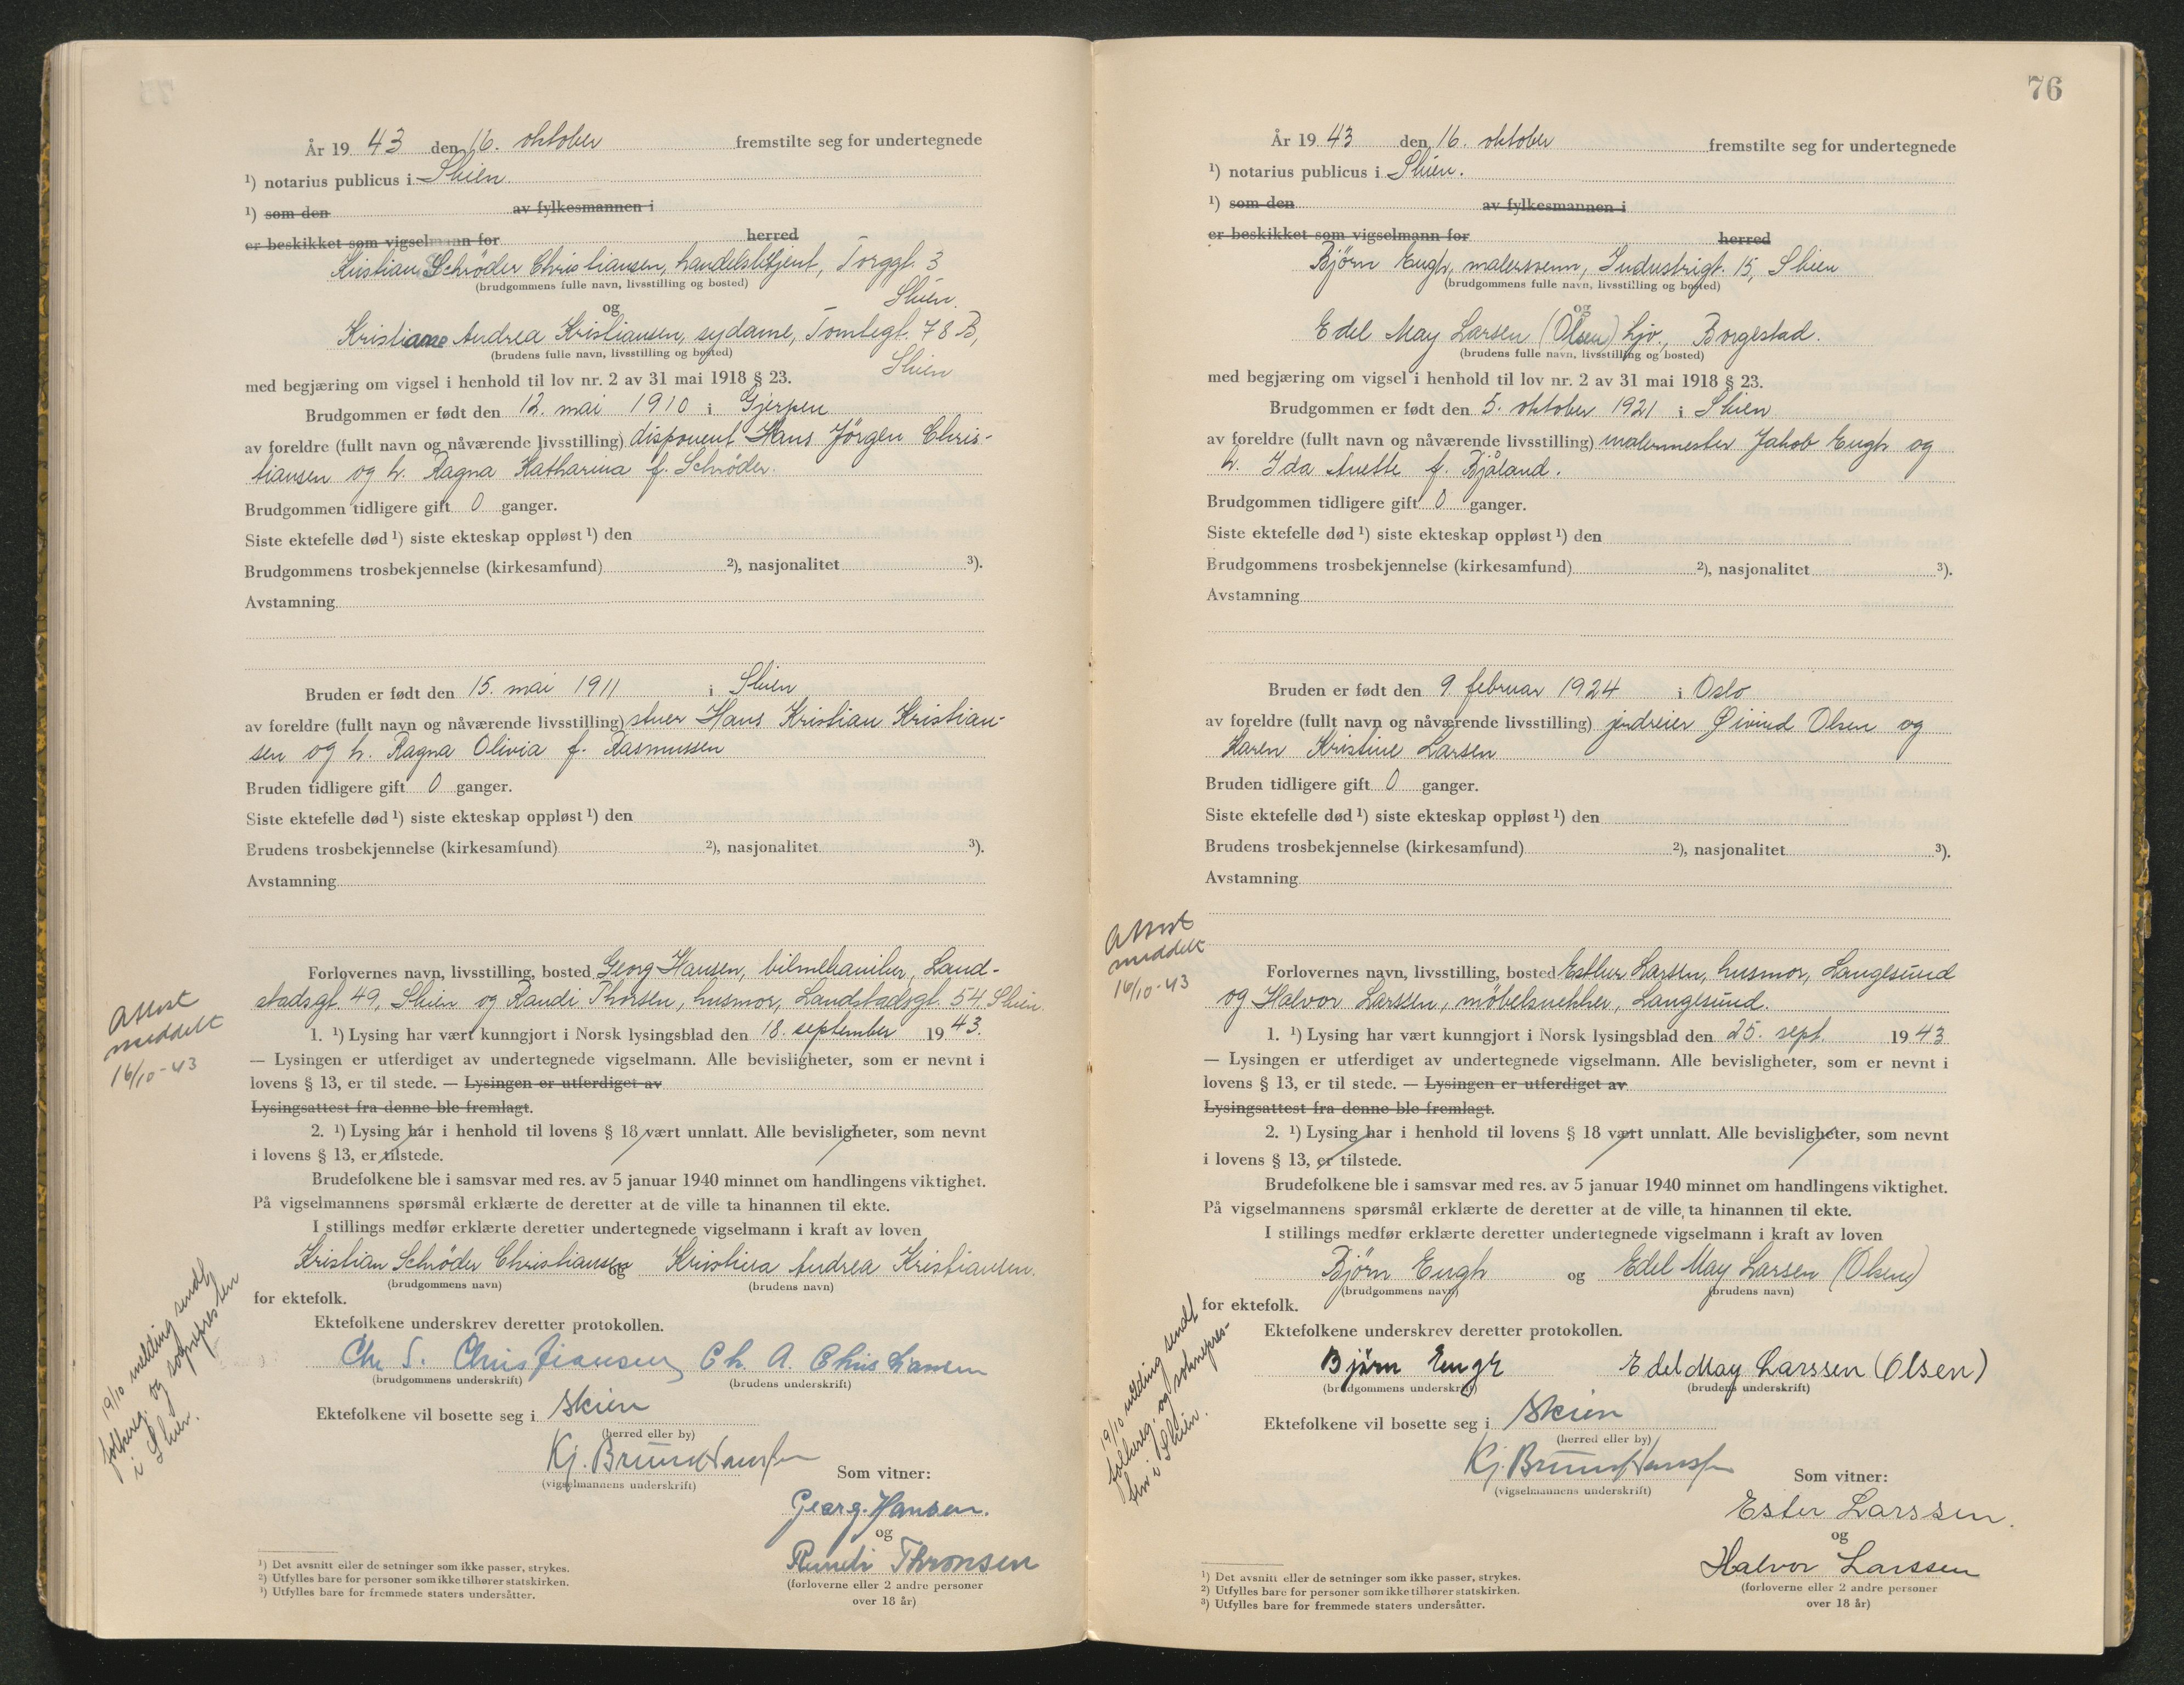 År 1943 den 16. oktober fremstilte seg for undertegnede
¹) notarius publicus i Skien
¹) som den av fylkesmannen i
er beskikket som vigselmann for herred
Kristian Schrøder Christiansen, handelsbetjent, Torggt. 3
(brudgommens fulle navn, livsstilling og bosted)
Skien.
og
Kristiane Andrea Kristiansen, sydame, Tomtegt. 78 B,
(brudens fulle navn, livsstilling og bosted)
Skien
med begjæring om vigsel i henhold til lov nr. 2 av 31 mai 1918 § 23.
Brudgommen er født den 12. mai 1910 i Gjerpen
av foreldre (fullt navn og nåværende livsstilling) disponent Hans Jörgen Chris-
tiansen og h. Ragna Katharina f. Schrøder.
Brudgommen tidligere gift 0 ganger.
Siste ektefelle død ¹) siste ekteskap oppløst ¹) den
Brudgommens trosbekjennelse (kirkesamfund) ²), nasjonalitet ³).
Avstamning
Bruden er født den 15. mai 1911 i Skien
av foreldre (fullt navn og nåværende livsstilling) stuer Hans Kristian Kristian-
sen og h. Ragna Olivia f. Rasmussen
Bruden tidligere gift 0 ganger.
Siste ektefelle død ¹) siste ekteskap oppløst ¹) den
Brudens trosbekjennelse (kirkesamfund) ²), nasjonalitet ³).
Avstamning
Forlovernes navn, livsstilling, bosted Georg Hansen, bilmekaniker, Land-
stadsgt. 49, Skien og Randi Thorsen, husmor, Landstadsgt. 54, Skien.
1. ¹) Lysing har vært kunngjort i Norsk lysingsblad den 18. september 1943.
— Lysingen er utferdiget av undertegnede vigselmann. Alle bevisligheter, som er nevnt i
lovens § 13, er til stede. — Lysingen er utferdiget av
Lysingsattest fra denne ble fremlagt.
2. ¹) Lysing har i henhold til lovens § 18 vært unnlatt. Alle bevisligheter, som nevnt
i lovens § 13, er tilstede.
Brudefolkene ble i samsvar med res. av 5 januar 1940 minnet om handlingens viktighet.
På vigselmannens spørsmål erklærte de deretter at de ville ta hinannen til ekte.
I stillings medfør erklærte deretter undertegnede vigselmann i kraft av loven
Kristian Schrøder Christiansen og Kristina Andrea Kristiansen.
(brudgommens navn) (brudens navn)
for ektefolk.
Ektefolkene underskrev deretter protokollen.
Chr S. Christiansen Ch. A. Christiansen
(brudgommens underskrift) (brudens underskrift)
Ektefolkene vil bosette seg i Skien
(herred eller by)
Kj. Bruun Hanssen
(vigselmannens underskrift)
Som vitner:
Georg. Hansen.
og
Randi Thronsen
(forloverne eller 2 andre personer
over 18 år)
¹) Det avsnitt eller de setninger som ikke passer, strykes.
²) Utfylles bare for personer som ikke tilhører statskirken.
³) Utfylles bare for fremmede staters undersåtter.
Attest
meddelt
16/10-43
19/10 melding sendt
folkereg. og sognepresten
i Skien.
76
År 1943 den 16. oktober fremstilte seg for undertegnede
¹) notarius publicus i Skien.
¹) som den av fylkesmannen i
er beskikket som vigselmann for herred
Bjørn Engh, malersvenn, Industrigt. 15, Skien
(brudgommens fulle navn, livsstilling og bosted)
og
Edel May Larsen (Olsen) hjv., Borgestad.
(brudens fulle navn, livsstilling og bosted)
med begjæring om vigsel i henhold til lov nr. 2 av 31 mai 1918 § 23.
Brudgommen er født den 5. oktober 1921 i Skien
av foreldre (fullt navn og nåværende livsstilling) malermester Jakob Engh og
h. Ida Anette f. Bjåland.
Brudgommen tidligere gift 0 ganger.
Siste ektefelle død ¹) siste ekteskap oppløst ¹) den
Brudgommens trosbekjennelse (kirkesamfund) ²), nasjonalitet ³).
Avstamning
Bruden er født den 9. februar 1924 i Oslo
av foreldre (fullt navn og nåværende livsstilling) jerndreier Øivind Olsen og
Karen Kristine Larsen
Bruden tidligere gift 0 ganger.
Siste ektefelle død ¹) siste ekteskap oppløst ¹) den
Brudens trosbekjennelse (kirkesamfund) ²), nasjonalitet ³).
Avstamning
Forlovernes navn, livsstilling, bosted Esther Larsen, husmor, Langesund
og Halvor Larssen, møbelsnekker, Langesund.
1. ¹) Lysing har vært kunngjort i Norsk lysingsblad den 25. sept. 1943
— Lysingen er utferdiget av undertegnede vigselmann. Alle bevisligheter, som er nevnt i
lovens § 13, er til stede. — Lysingen er utferdiget av
Lysingsattest fra denne ble fremlagt.
2. ¹) Lysing har i henhold til lovens § 18 vært unnlatt. Alle bevisligheter, som nevnt
i lovens § 13, er tilstede.
Brudefolkene ble i samsvar med res. av 5 januar 1940 minnet om handlingens viktighet.
På vigselmannens spørsmål erklærte de deretter at de ville ta hinannen til ekte.
I stillings medfør erklærte deretter undertegnede vigselmann i kraft av loven
Bjørn Engh og Edel May Larsen (Olsen)
(brudgommens navn) (brudens navn)
for ektefolk.
Ektefolkene underskrev deretter protokollen.
Bjørn Engh Edel May Larssen (Olsen)
(brudgommens underskrift) (brudens underskrift)
Ektefolkene vil bosette seg i Skien
(herred eller by)
Kj. Bruun Hanssen
(vigselmannens underskrift)
Som vitner:
Ester Larssen.
og
Halvor Larssen
(forloverne eller 2 andre personer
over 18 år)
¹) Det avsnitt eller de setninger som ikke passer, strykes.
²) Utfylles bare for personer som ikke tilhører statskirken.
³) Utfylles bare for fremmede staters undersåtter.
Attest
meddelt
16/10-43
19/10 melding sendt
folkereg. og soknepres-
ten i Skien.